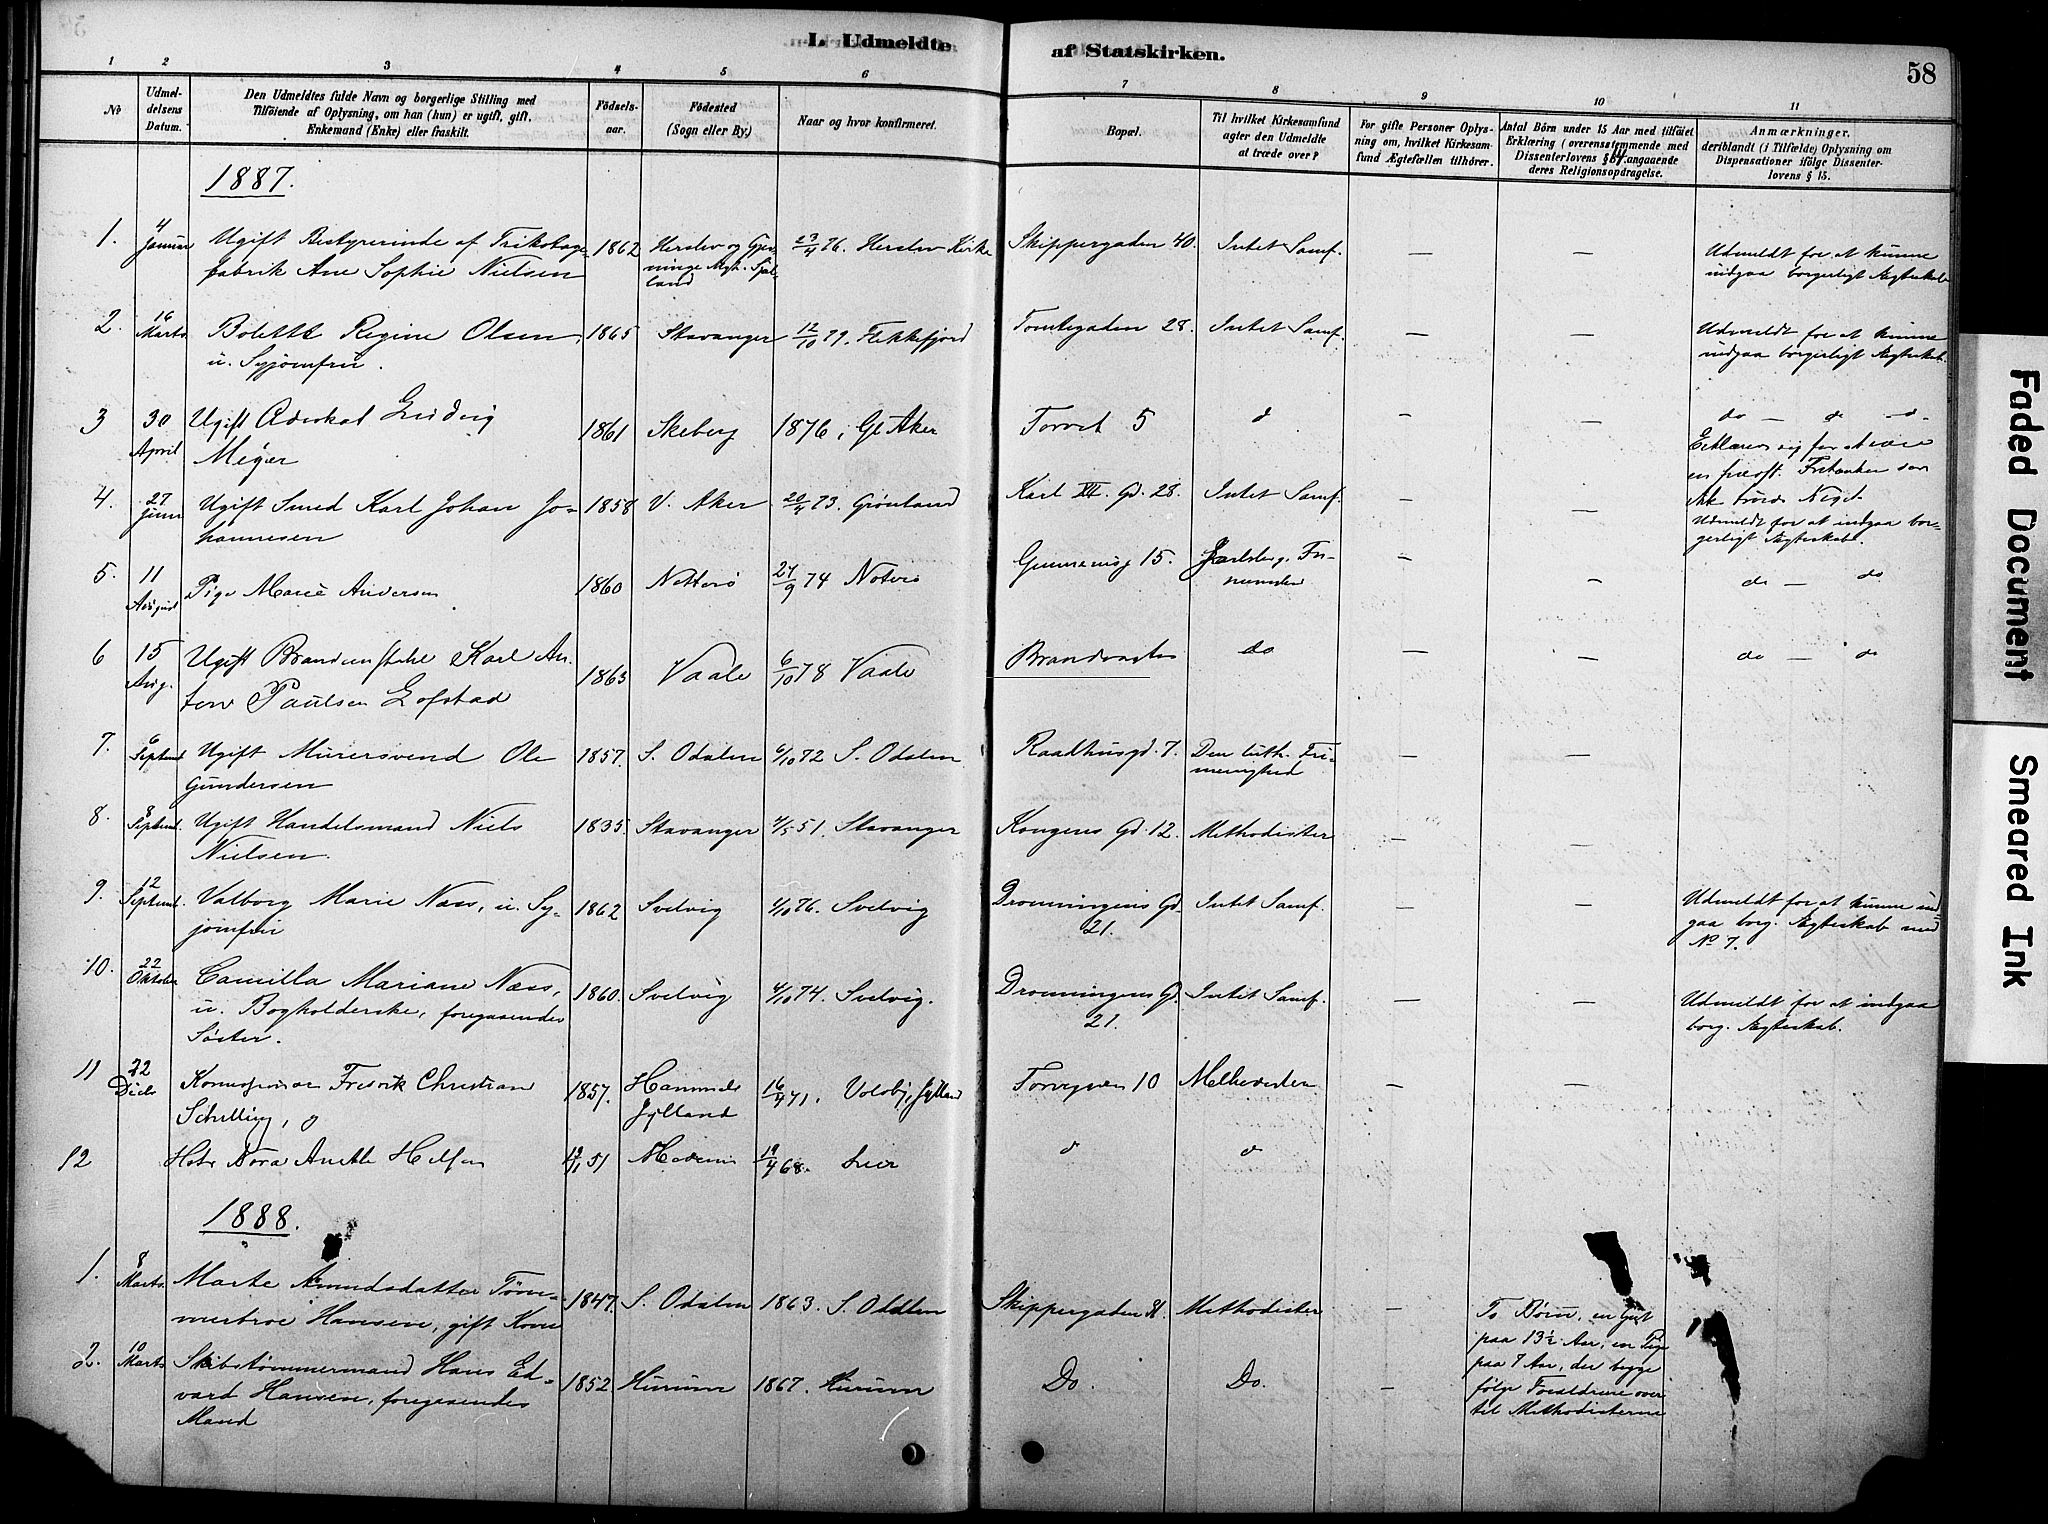 L. Udmeldte af Statskirken.
58
1 2 3 4 5 6 7 8 9 10 11
No
Udmeldelsens Datum.
Den Udmeldtes fulde Navn og borgerlige Stilling med
Tilføiende af Oplysning, om han (hun) er ugift, gift,
Enkemand (Enke) eller fraskilt.
Fødselsaar.
Fødested
(Sogn eller By.)
Naar og hvor konfirmeret.
Bopæl.
Til hvilket Kirkesamfund
agter den Udmeldte
at træde over?
For gifte Personer Oplys-
ning om, hvilket Kirkesam-
fund Ægtefællen tilhører.
Antal Børn under 15 Aar med tilføiet
Erklæring (overensstemmende med
Dissenterlovens § 14 angaaende
deres Religionsopdragelse.
Anmærkninger,
deriblandt (i Tilfælde) Oplysning om
Dispensationer ifølge Dissenter-
lovens § 15.
1887.
1. 4 Januar Ugift Bestyrerinde af Trikotage- 1862 Herslev og Gjev- 23/4 76. Herslev Kirke Skippergaden 40. Intet Samf. — — Udmeldt for at kunne
fabrik Ane Sophie Nielsen ninge Sogn. Sjæl- indgaa borgerligt Ægteskab
land
2. 16 Marts Bolette Regine Olsen, 1865 Stavanger 12/10 79. Flekkefjord Tomtegaden 28. Intet Samf. — — Udmeldt for at kunne
u. Syjomfru. indgaa borgerligt Ægteskab.
3 30 April Ugift Advokat Ludvig 1861 Skeberg 1876, Gl Aker Torvet 5 d — — do — do — d-
Meyer Erklærer sig for at være
en Fritænker som
ikke
4. 27 Juni Ugift Smed Karl Johan Jo- 1858 V. Aker 20/4 73. Grønland Karl XII. Gd. 28. Intet Samf. — — Udmeldt for at indgaa bor-
hannesen gerligt Ægteskab.
5. 11 August Pige Marie Andersen 1860 Nøtterø 27/9 74 Jarlsberg. Fri- — — do — do
menighed
6 15 Aug. Ugift Karl An- 1863 Vaale 6/10 78 Vaale Brandvagten do — — do — do
ton Paulsen Lofstad
7. 6 Septemb Ugift Murersvend Ole 1857. S. Odalen 6/10 72 S. Odalen Raadhusgd. 7. Den luth. Fri- — —
Gundersen menighed
8. 8 Septemb. Ugift Handelsmand Niels 1835 Stavanger 4/5 51. Stavanger Kongens Gd. 12. Methodister — —
Nielsen.
9. 12 Septemb. Valborg Marie Næss, u. Sy- 1862 Svelvig 1/10 76. Svelvig Dronningens Gd. Intet Samf. — — Udmeldt for at kunne ind-
jomfru 21. gaa borg. Ægteskab med
No 7.
10. 22 Oktober Camilla Mariane Næss, 1860. Svelvig 4/10 74. Svelvig. Dronningens Gd. Intet Samf. — — Udmeldt for at indgaa
u. Bogholderske, foregaaendes 21. borg. Ægteskab.
Søster.
11 22 Decbr Fredrik Christian 1857. 16/4 71. Jylland 10 — —
Schelling, og Jylland
12 Dora Anette 51 Modum 19/4 68. Lier d d
1888.
1. 8 Marts. Marte Amundsdatter Tøm- 1847. S. Odalen 1863. S. Odalen Skippergaden Methodister — To Børn, en Gut
merbroe Hansen, gift Kone paa 13½ Aar, en Pige
2. 10 Marts Skibstømmermand Hans Ed- 1852. Hurum 1867. Hurum Do. Do. — paa 7 Aar, der begge
vard Hansen, foregaaendes følge Forældrene over
Mand til Methodisterne
Faded Document
Smeared Ink